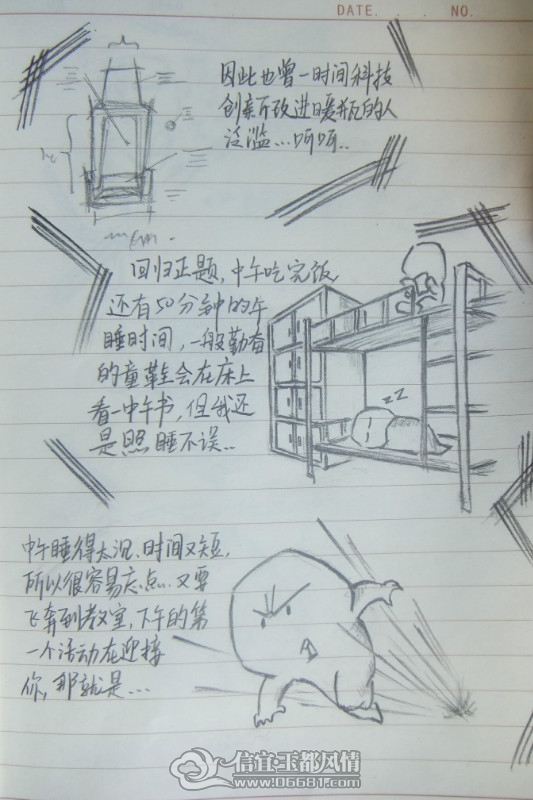 DATE. . . NO.
因此也曾一时间科技
创新所改进暖瓶的人
泛滥...呵呵..
回归正题,中午吃完饭
还有50分钟的午
睡时间,一般勤奋
的童鞋会在床上
看一中午书,但我还
是照睡不误..
ZZ
中午睡得太沉、时间又短,
所以很容易忘点...又要
飞奔到教室,下午的第
一个活动在迎接
你,那就是...
信宜玉都风情
www.06681.com